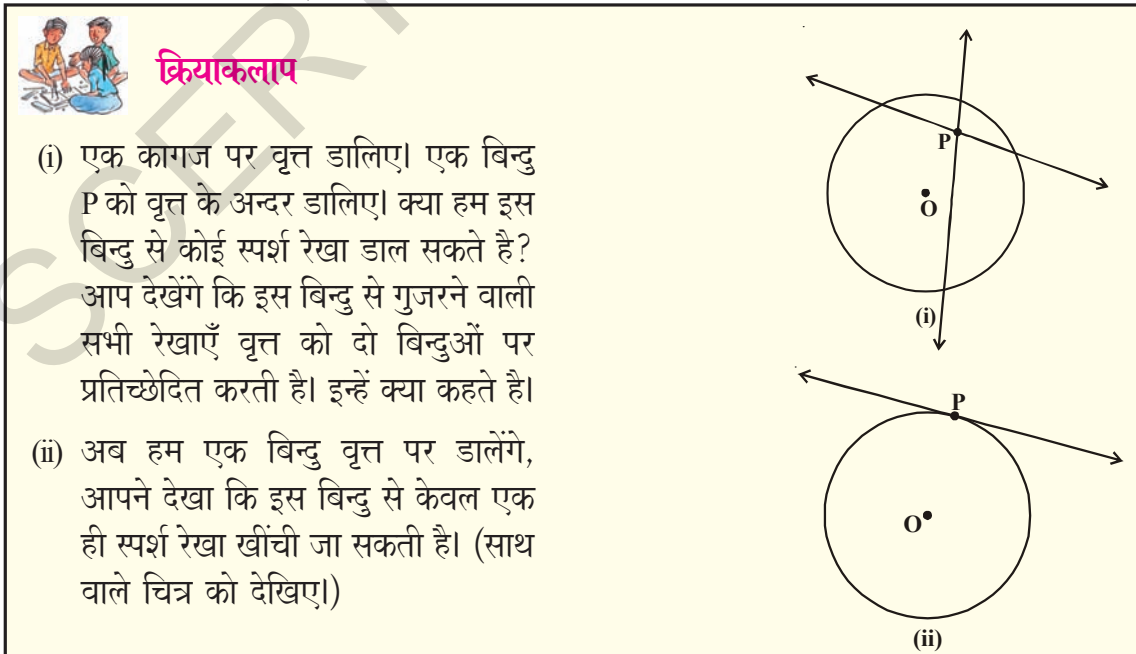 क्रियाकलाप
(i) एक कागज पर वृत्त डालिए। एक बिन्दु
P को वृत्त के अन्दर डालिए। क्या हम इस
बिन्दु से कोई स्पर्श रेखा डाल सकते है?
आप देखेंगे कि इस बिन्दु से गुजरने वाली
सभी रेखाएँ वृत्त को दो बिन्दुओं पर
प्रतिच्छेदित करती है। इन्हें क्या कहते है।
(ii) अब हम एक बिन्दु वृत्त पर डालेंगे,
आपने देखा कि इस बिन्दु से केवल एक
ही स्पर्श रेखा खींची जा सकती है। (साथ
वाले चित्र को देखिए।)
P
O
(i)
P
O
(ii)
SCERT